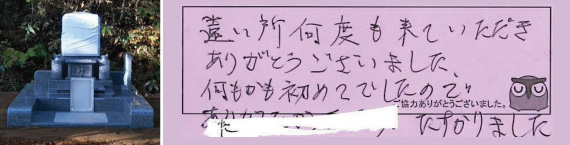 遠い所何度も来ていただき
ありがとうございました、
何もかも初めてでしたので
ご協力ありがとうございました。
たすかりました